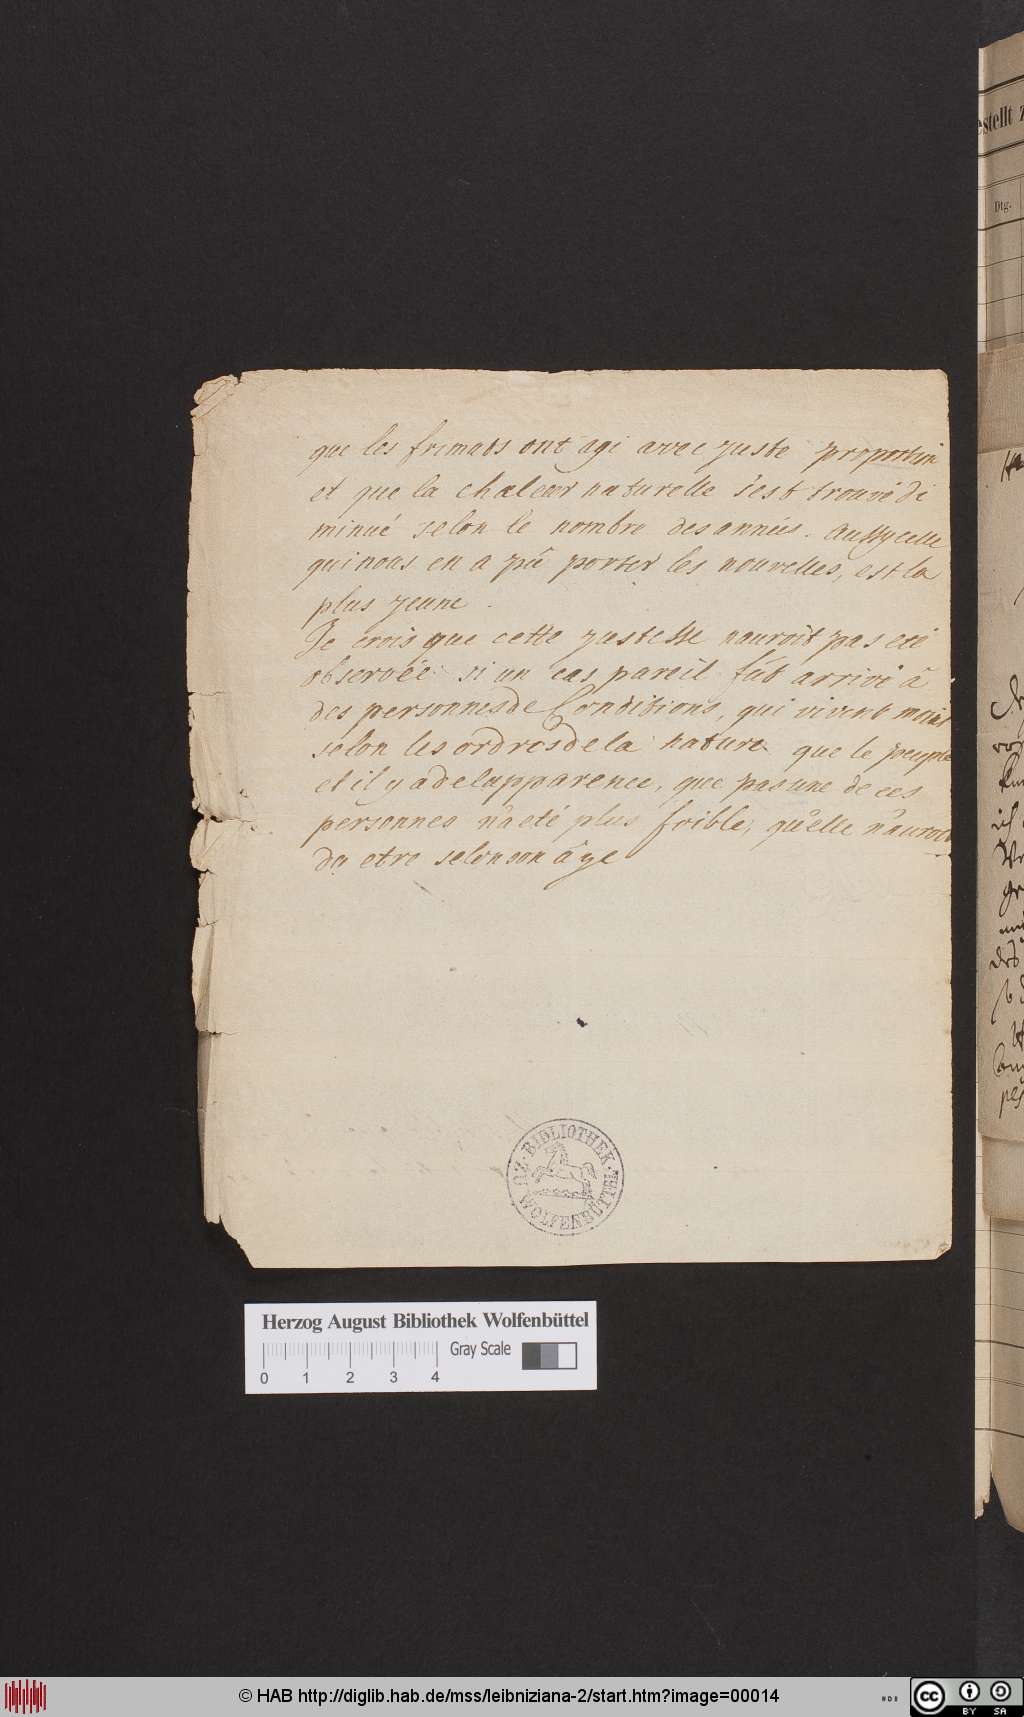 que les frimats ont agi avec juste proportion
et que la chaleur naturelle s'est trouvé di
minué selon le nombre des années. aussy celle
qui nous en a pû porter les nouvelles, est la
plus jeune.
Je crois que cette justesse nauroit pas eté
observée si un cas pareil fût arrivé à
des personnes de Conditions, qui vivent moins
selon les ordres de la nature que le peuple
et il y a de lapparence, que pas une de ces
personnes n'a eté plus foible, qu'elle n'auroit
du etre selon son âge
BIBLIOTHEK
WOLFENBÜTTEL
Herzog August Bibliothek Wolfenbüttel
Gray Scale
0 1 2 3 4
estellt z
Dtg.
ich
des
© HAB http://diglib.hab.de/mss/leibniziana-2/start.htm?image=00014
cc BY SA